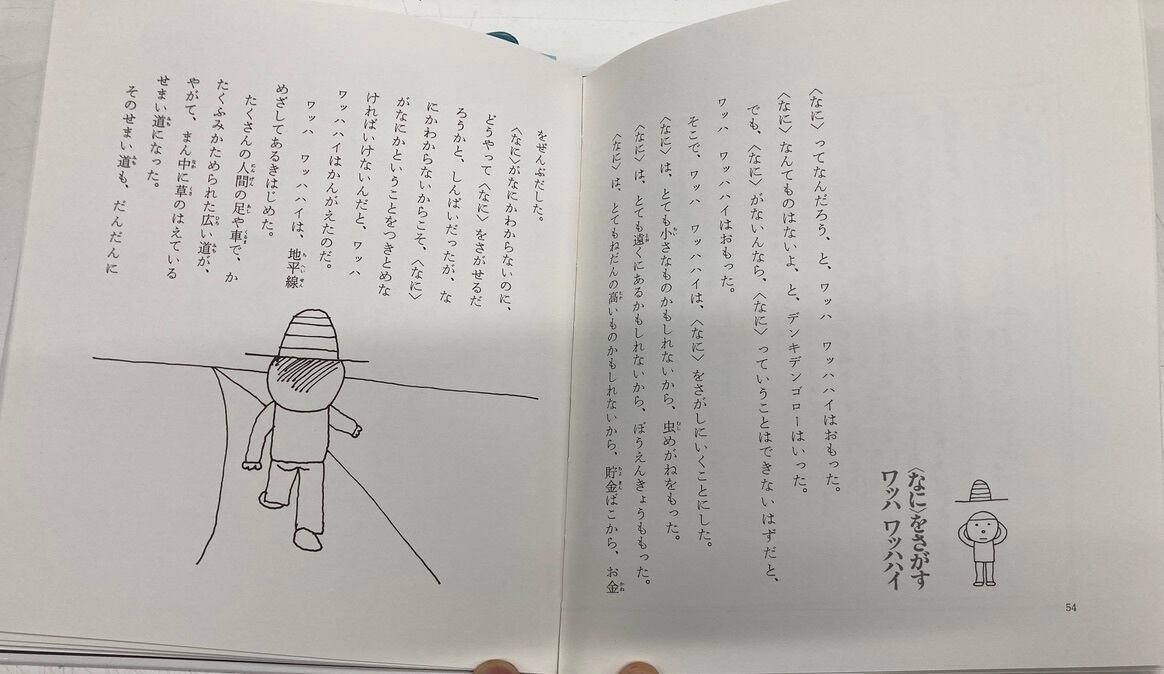 〈なに〉をさがす
ワッハ ワッハハイ
〈なに〉ってなんだろう、と、ワッハ　ワッハハイはおもった。
〈なに〉なんてものはないよ、と、デンキデンゴローはいった。
でも、〈なに〉がないんなら、〈なに〉っていうことはできないはずだと、
ワッハ　ワッハハイはおもった。
そこで、ワッハ　ワッハハイは、〈なに〉をさがしにいくことにした。
〈なに〉は、とても小さなものかもしれないから、虫めがねをもった。
〈なに〉は、とても遠くにあるかもしれないから、ぼうえんきょうももった。
〈なに〉は、とてもねだんの高いものかもしれないから、貯金ばこから、お金
54
をぜんぶだした。
〈なに〉がなにかわからないのに、
どうやって〈なに〉をさがせるだ
ろうかと、しんぱいだったが、な
にかわからないからこそ、〈なに〉
がなにかということをつきとめな
ければいけないんだと、ワッハ
ワッハハイはかんがえたのだ。
ワッハ　ワッハハイは、地平線
めざしてあるきはじめた。
たくさんの人間の足や車で、か
たくふみかためられた広い道が、
やがて、まん中に草のはえている
せまい道になった。
そのせまい道も、だんだんに